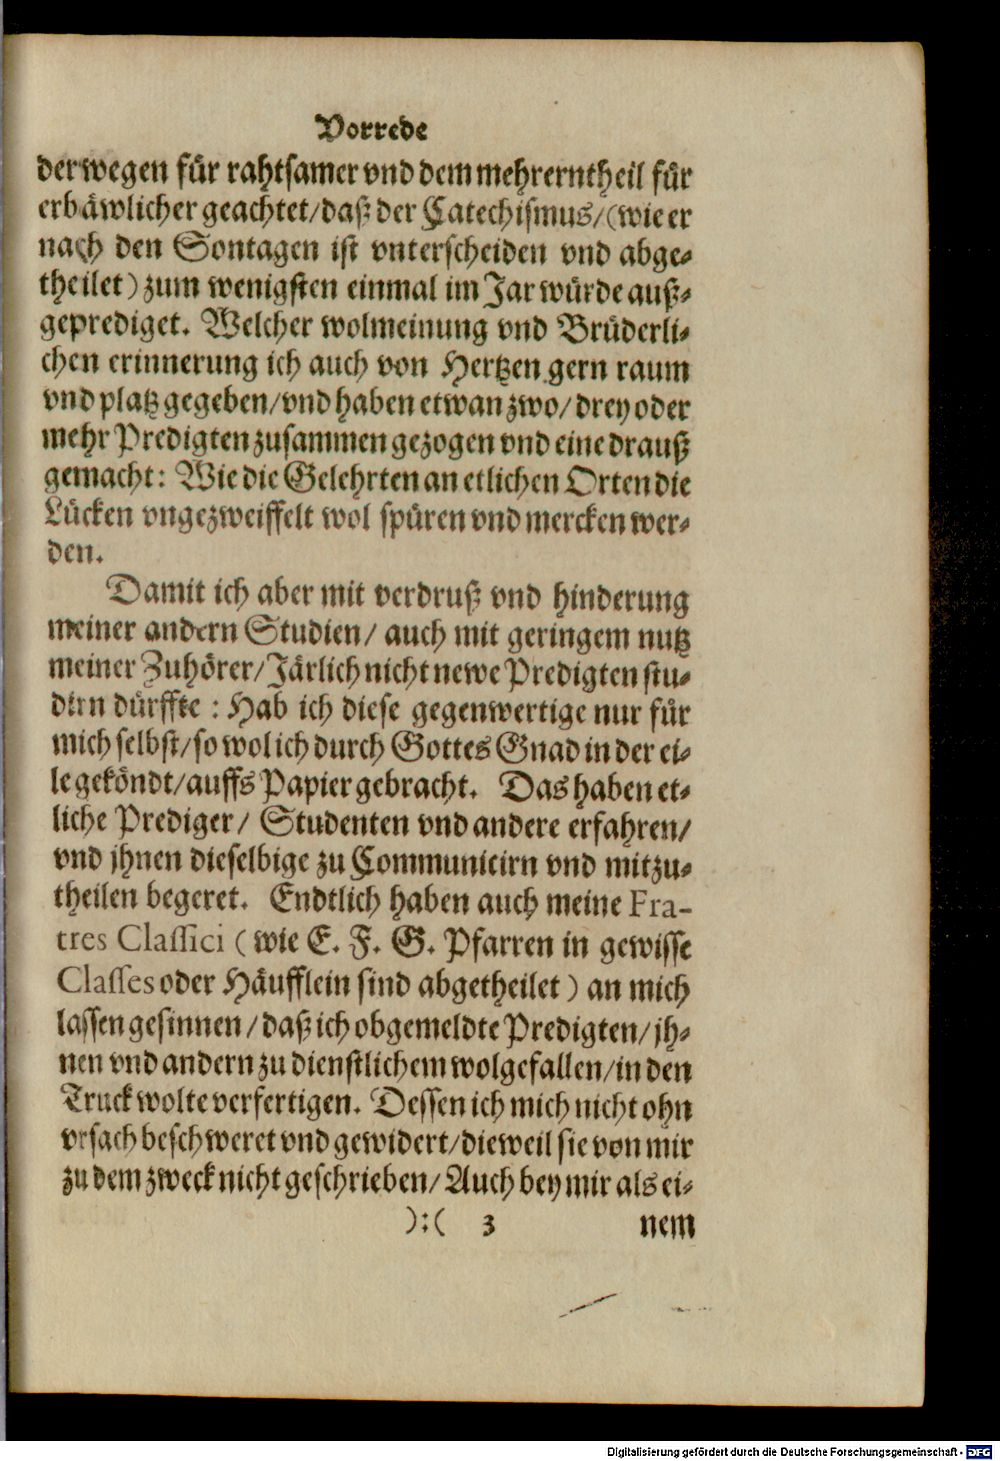 Vorrede
derwegen für rahtsamer vnd dem mehrerntheil für
erbäwlicher geachtet/ daß der Catechismus/ (wie er
nach den Sontagen ist vnterscheiden vnd abge-
theilet) zum wenigsten einmal im Jar würde auß-
geprediget. Welcher wolmeinung vnd Brüderli-
chen erinnerung ich auch von Hertzen gern raum
vnd platz gegeben/ vnd haben etwan zwo/ drey oder
mehr Predigten zusammen gezogen vnd eine drauß
gemacht: Wie die Gelehrten an etlichen Orten die
Lücken vngezweiffelt wol spüren vnd mercken wer-
den.
Damit ich aber mit verdruß vnd hinderung
meiner andern Studien/ auch mit geringem nutz
meiner Zuhörer/ Järlich nicht newe Predigten stu-
dirn dürffte: Hab ich diese gegenwertige nur für
mich selbst/ so wol ich durch Gottes Gnad in der ei-
le geköndt/ auffs Papier gebracht. Das haben et-
liche Prediger/ Studenten vnd andere erfahren/
vnd jhnen dieselbige zu Communicirn vnd mitzu-
theilen begeret. Endtlich haben auch meine Fra-
tres Classici (wie E. F. G. Pfarren in gewisse
Classes oder Häufflein sind abgetheilet) an mich
lassen gesinnen/ daß ich obgemeldte Predigten/ jh-
nen vnd andern zu dienstlichem wolgefallen/ in den
Truck wolte verfertigen. Dessen ich mich nicht ohn
vrsach beschweret vnd gewidert/ dieweil sie von mir
zu dem zweck nicht geschrieben/ Auch bey mir als ei-
):( 3 nem
Digitalisierung gefördert durch die Deutsche Forschungsgemeinschaft - DFG